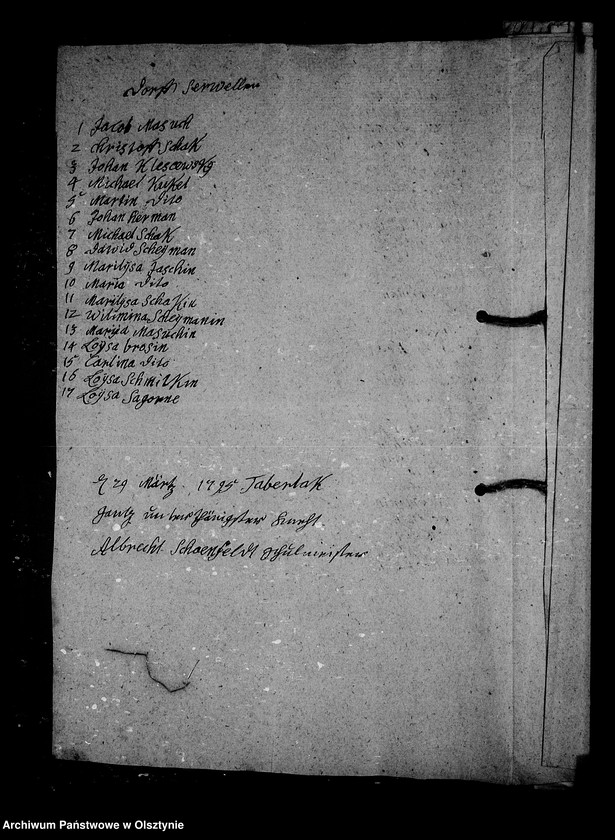 Dorff Serwellen
1 Jacob Masuch
2 Christoff Schak
3 Johan Klescowsky
4 Michael Kukel
5 Martin Dito
6 Johan Herman
7 Michael Schak
8 Dawid Scheyman
9 Marilysa Jaschin
10 Maria Dito
11 Marilysa Schakin
12 Wilimina Scheymanin
13 Marija Masuchin
14 Loysa brosin
15 Carlina Dito
16 Loysa Schmilkin
17 Loysa Sagorne
29 Märtz 1795 Taberlak
gantz unterthänigster Knecht
Albrecht Schoenfeldt Schulmeister
Archiwum Państwowe w Olsztynie